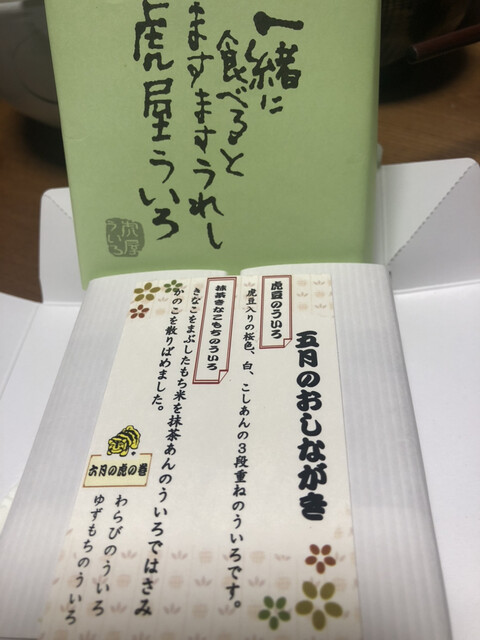 一緒に
食べると
ますますうれし
虎屋ういろ
虎屋
ういろ
五月のおしながき
虎豆のういろ
虎豆入りの桜色、白、こしあんの3段重ねのういろです。
抹茶きなこもちのういろ
きなこをまぶしたもち米を抹茶あんのういろではさみ
かのこを散りばめました。
六月の虎の巻
わらびのういろ
ゆずもちのういろ